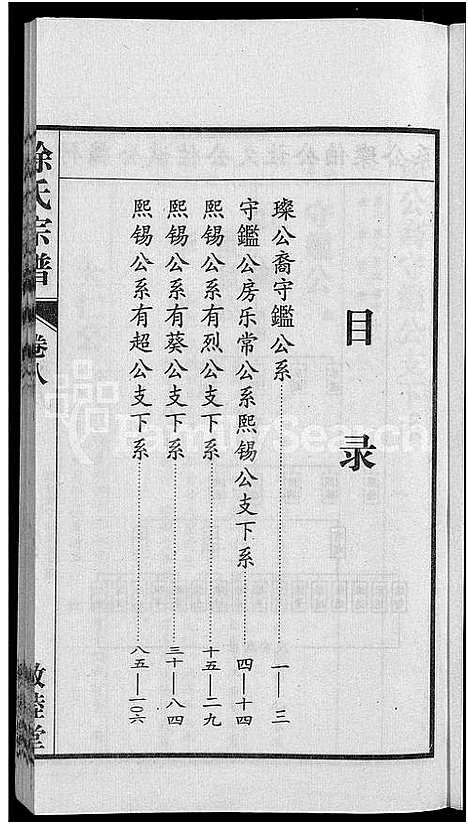 目录
璨公裔守鑑公系……一—三
守鑑公房乐常公系熙锡公支下系……四—十四
熙锡公系有烈公支下系……十五—二九
熙锡公系有葵公支下系……三十—八四
熙锡公系有超公支下系……八五—一〇六
徐氏宗谱
卷八
敦睦堂
FamilySearch